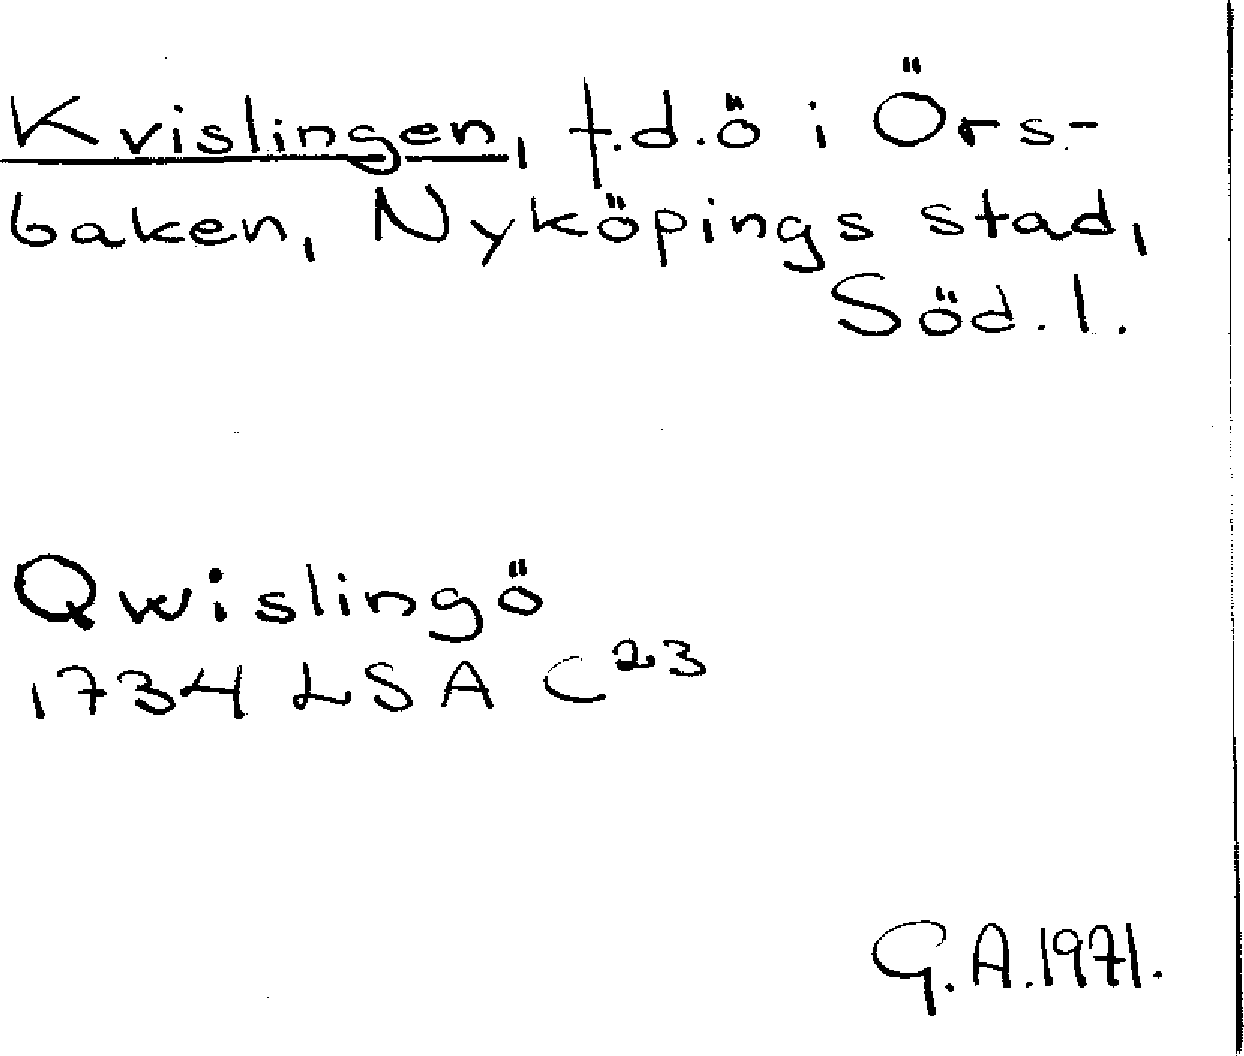 Kvislingen, f.d.ö i Örs-
baken, Nyköpings stad,
Söd. l.
Qwislingö
1734 LSA C23
G.A.1971.